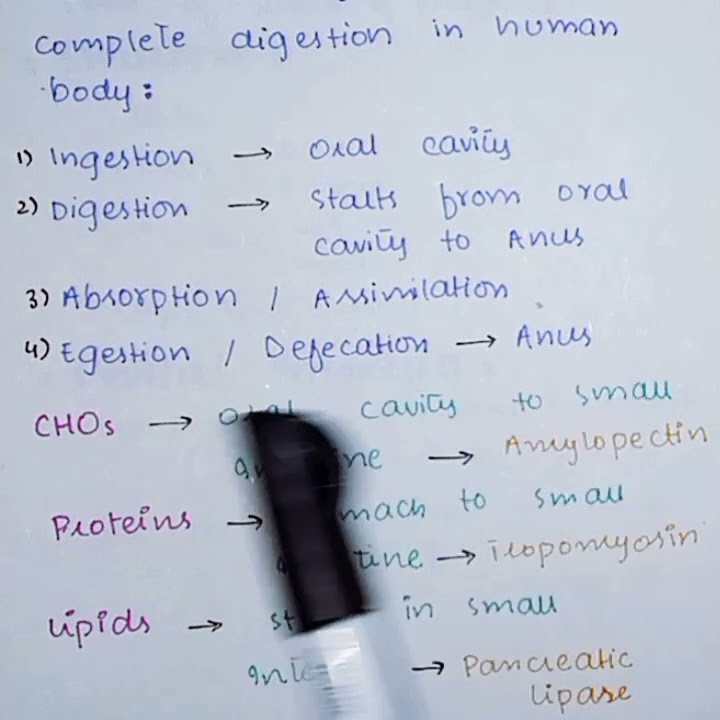 Complete digestion in human
body:
1) Ingestion → Oral cavity
2) Digestion → Starts from oral
cavity to Anus
3) Absorption / Assimilation
4) Egestion / Defecation → Anus
CHOs → cavity to small
→ Amylopectin
Proteins → to small
→ Tropomyosin
Lipids → in small
→ Pancreatic
lipase